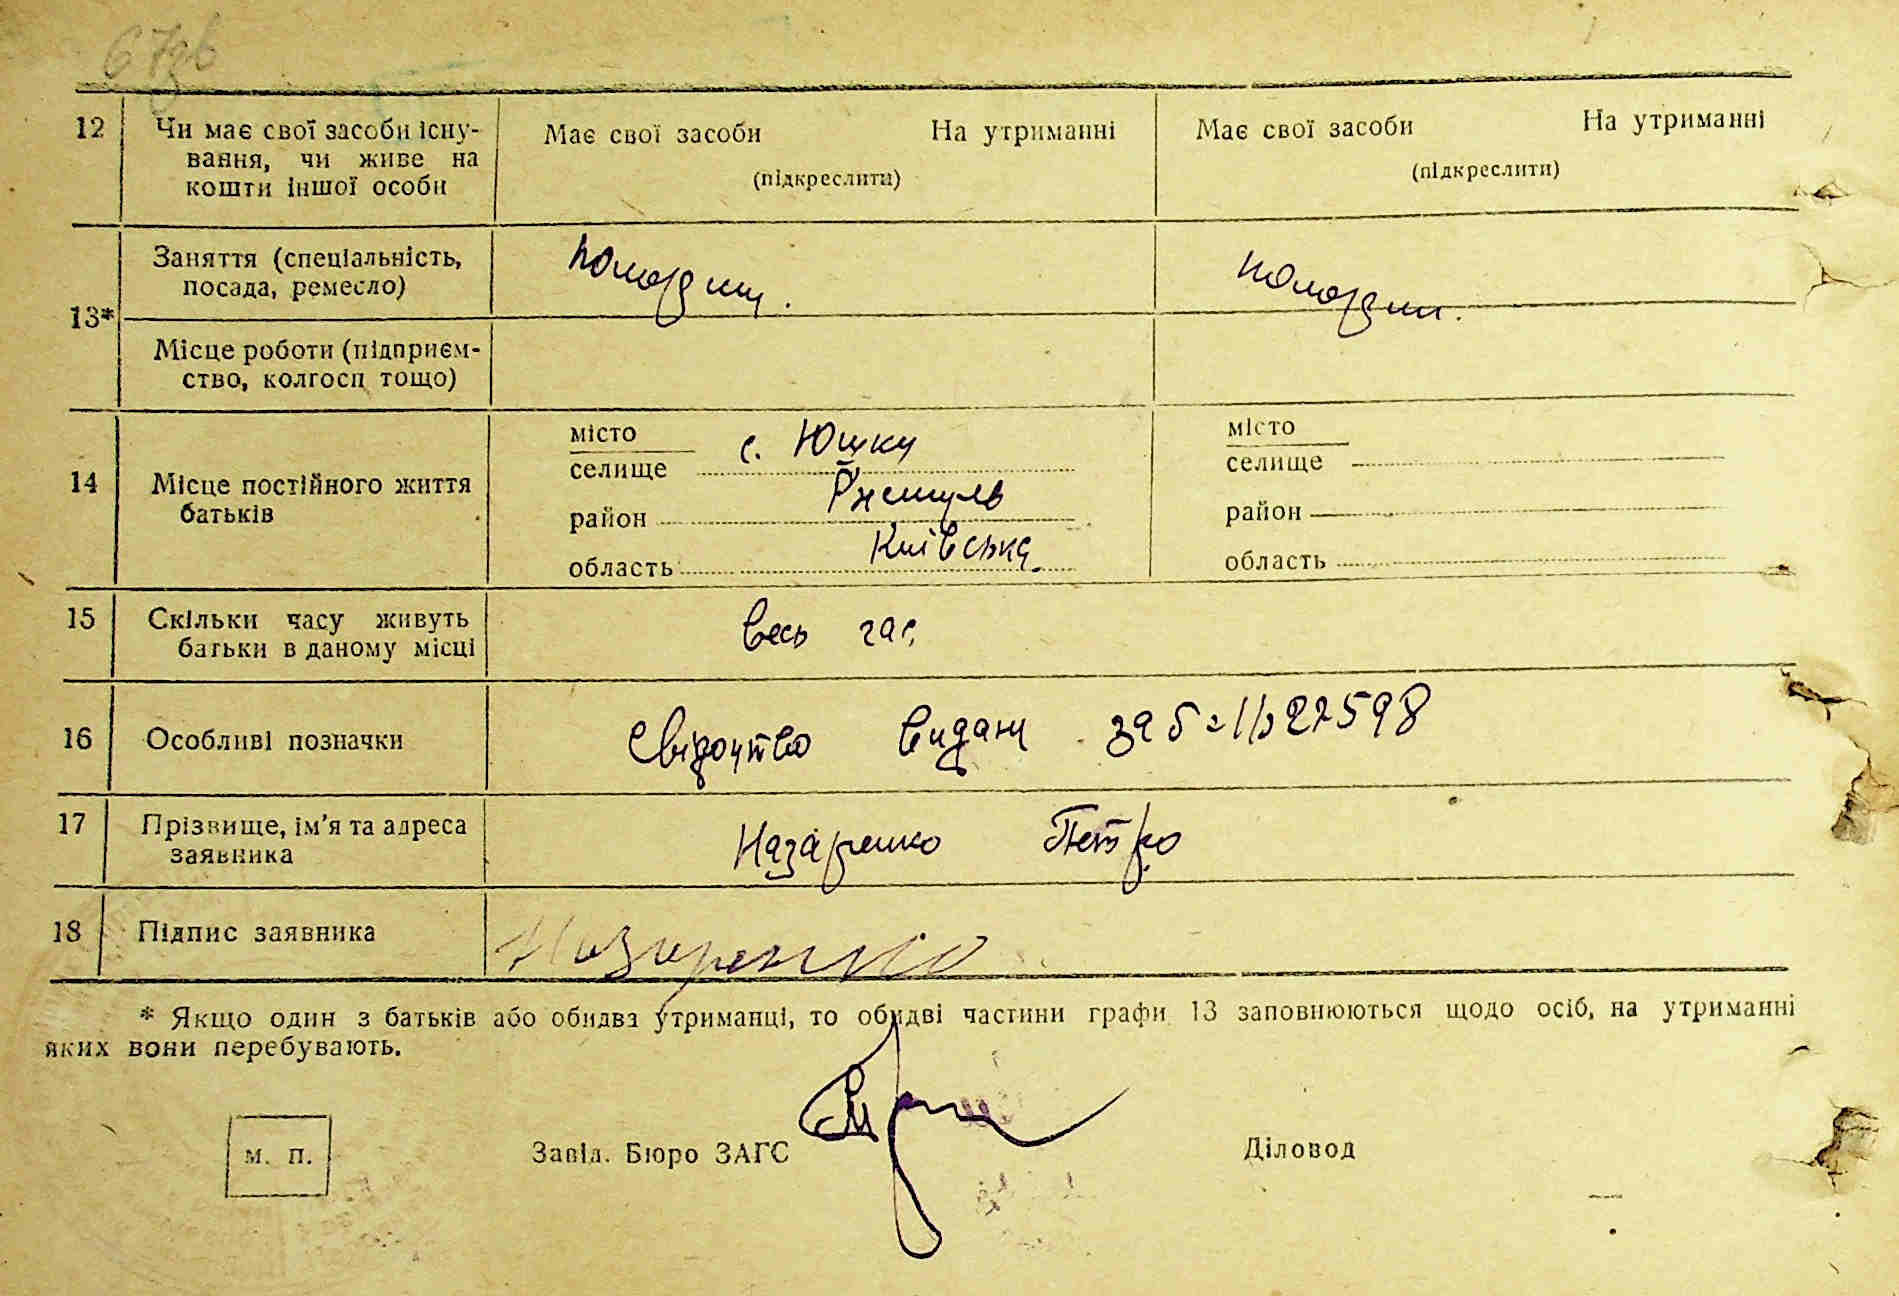 67зв
12 Чи має свої засоби існу-
вання, чи живе на
кошти іншої особи
Має свої засоби На утриманні
(підкреслити)
Має свої засоби На утриманні
(підкреслити)
13*
Заняття (спеціальність,
посада, ремесло)
Місце роботи (підприєм-
ство, колгосп тощо)
14 Місце постійного життя
батьків
місто
селище с. Юшки
район
область Київська
місто
селище
район
область
15 Скільки часу живуть
батьки в даному місці
весь час
16 Особливі позначки
Свідоцтво видан
17 Прізвище, ім'я та адреса
заявника
Назаренко Петро
18 Підпис заявника
Назаренко
* Якщо один з батьків або обидва утриманці, то обидві частини графи 13 заповнюються щодо осіб, на утриманні
яких вони перебувають.
м. п.
Завід. Бюро ЗАГС
Діловод